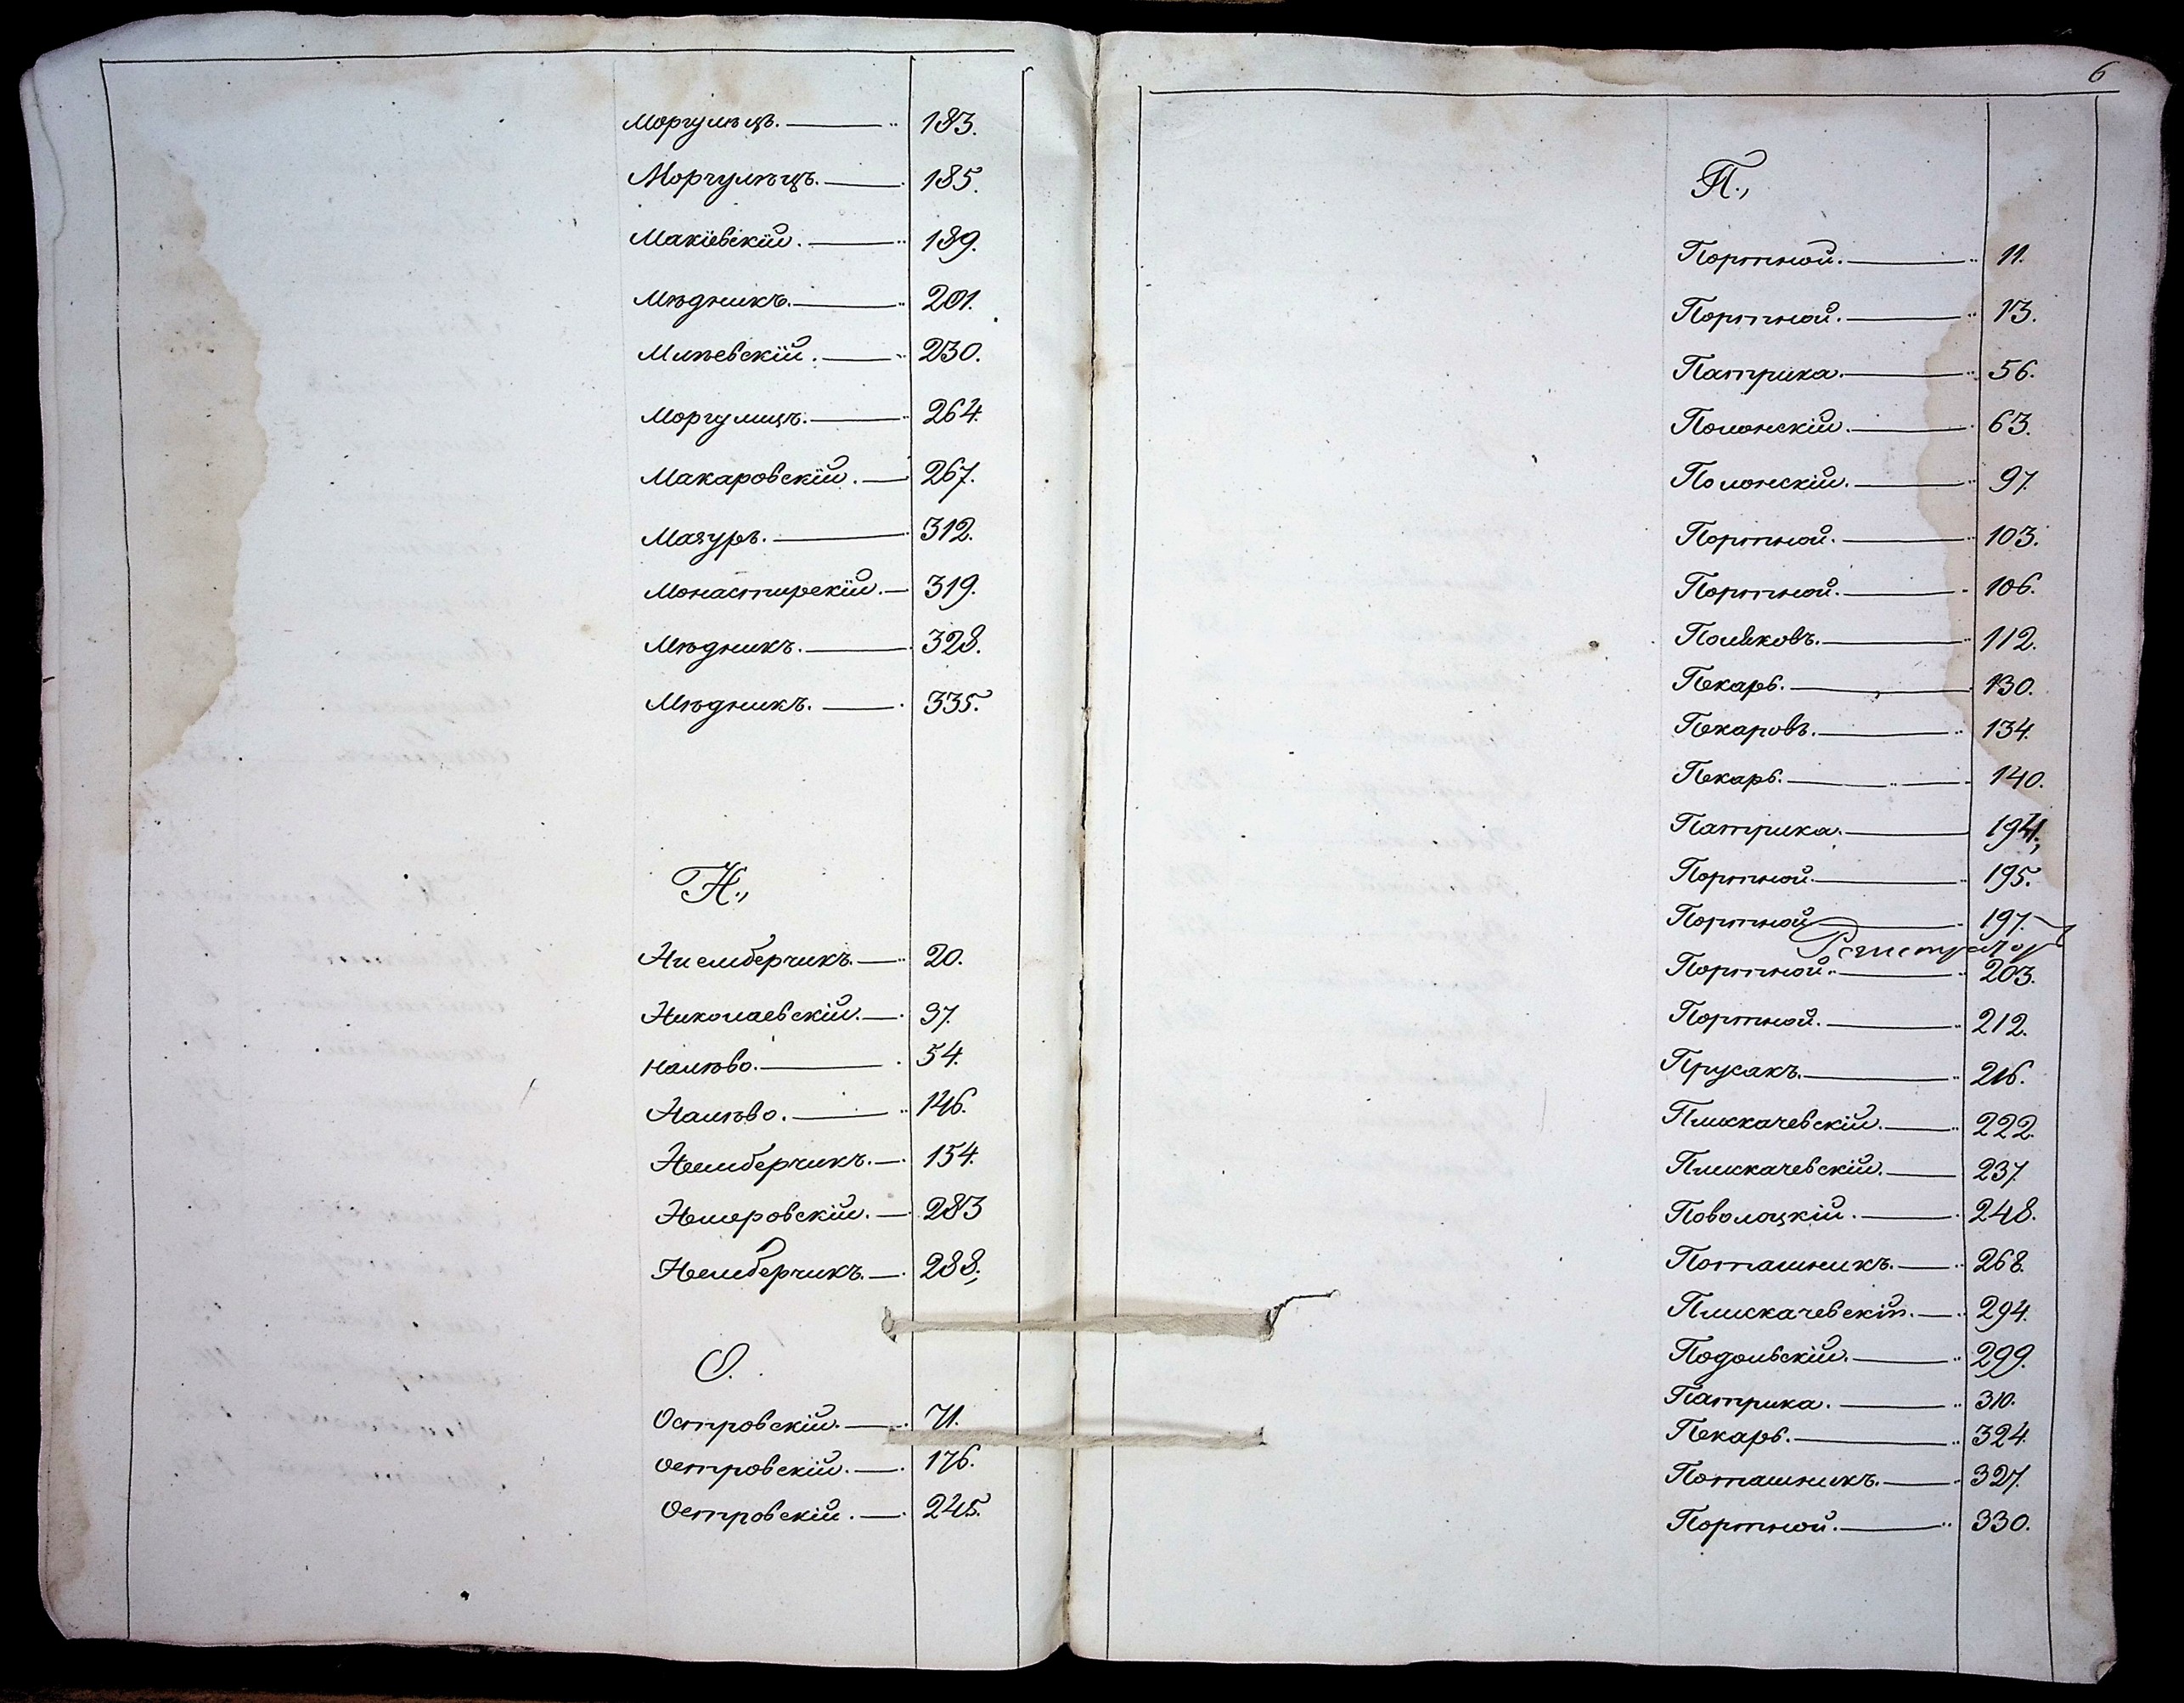 Моргулѣцъ. 183.
Моргулѣцъ. 185.
Макіевскій. 189.
Мѣдникъ. 201.
Милѣевскій. 230.
Моргулицъ. 264.
Макаровскій. 267.
Мазуръ. 312.
Монастирскій. 319.
Мѣдникъ. 328.
Мѣдникъ. 335.
Н.,
Ниемберчикъ. 20.
Николаевскій. 37.
Налѣво. 54.
Налѣво. 146.
Немберчикъ. 154.
Немеровскій. 283
Немберчикъ. 288.
О.
Островскій. 71.
Островскій. 176.
Островскій. 245.
6
П.,
Портной. 11.
Портной. 13.
Патрика. 56.
Полонскій. 63.
Полонскій. 97.
Портной. 103.
Портной. 106.
Поляковъ. 112.
Пекарь. 130.
Пекаровъ. 134.
Пекарь. 140.
Патрика. 194.
Портной. 195.
Портной 197.
Регистраторъ
Портной. 203.
Портной. 212.
Прусакъ. 216.
Плискачевскій. 222.
Плискачевскій. 237.
Поволоцкій. 248.
Поташникъ. 268.
Плискачевскій. 294.
Подольскій. 299.
Патрика. 310.
Пекарь. 324.
Поташникъ. 327.
Портной. 330.